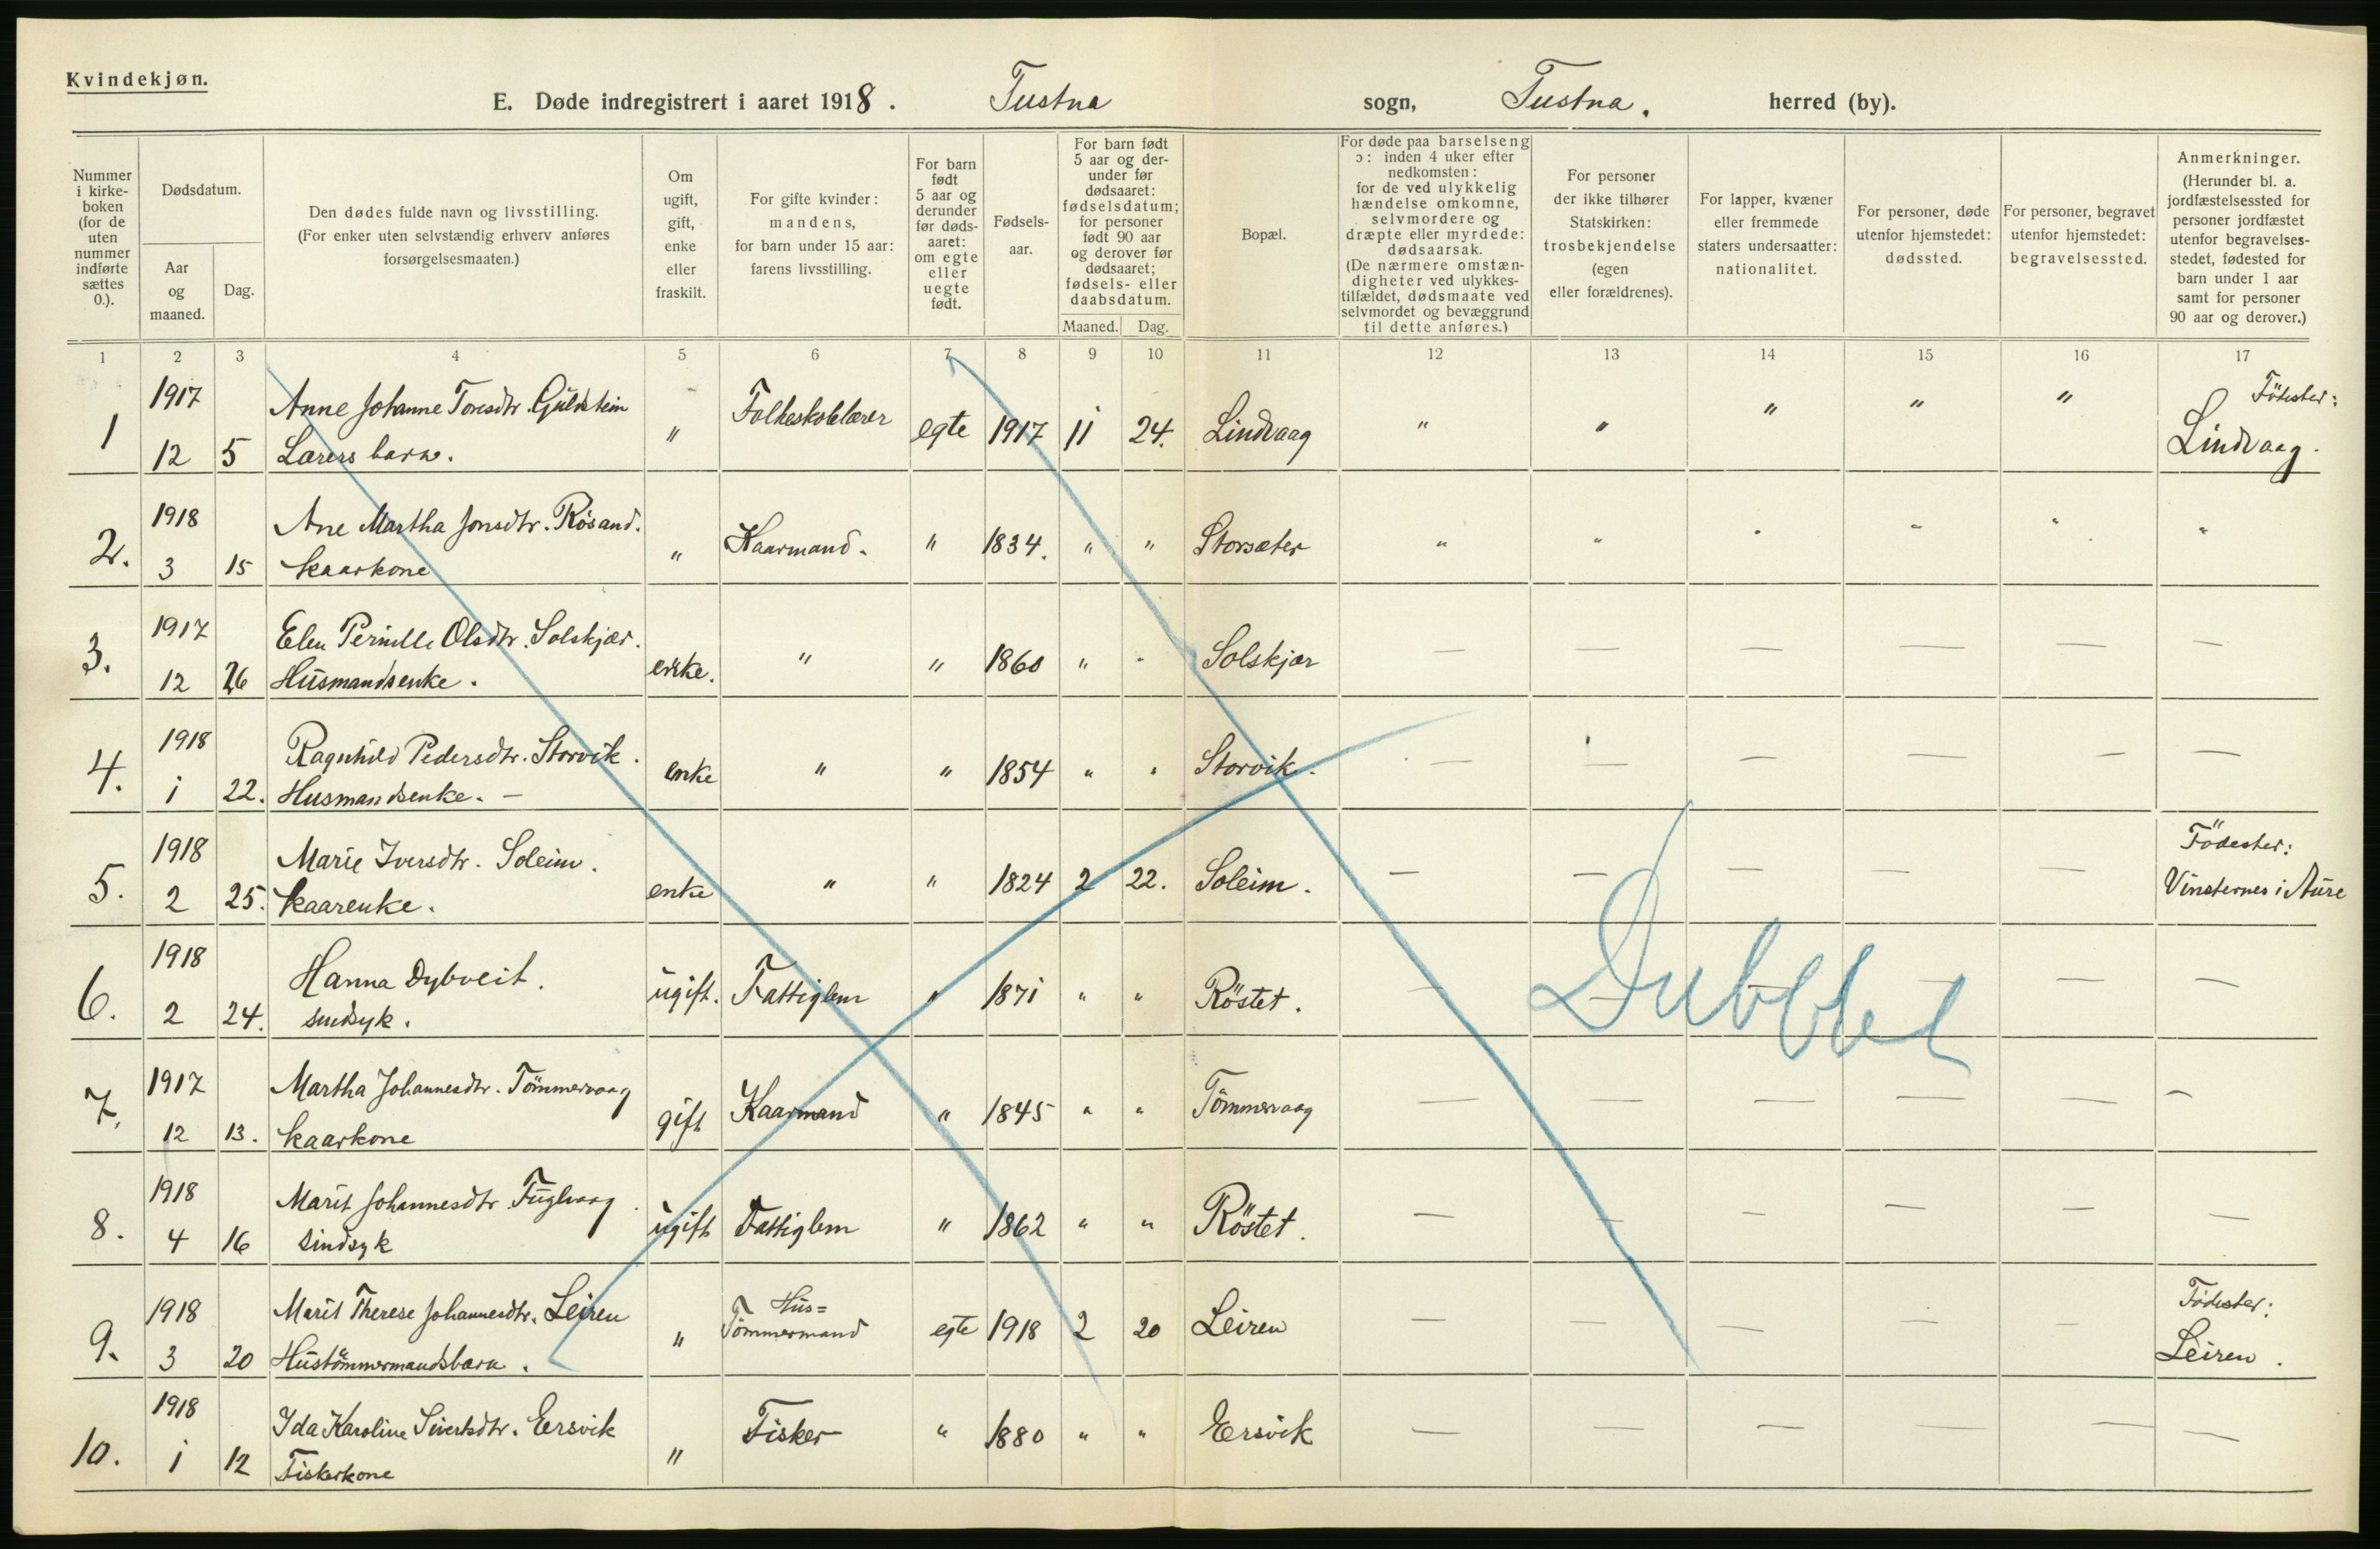 Kvindekjøn.
E. Døde indregistrert i aaret 1918. Tustna sogn, Tustna. herred (by).
Nummer i kirkeboken (for de uten nummer indførte sættes 0.).
Dødsdatum.
Aar og maaned.
Dag.
Den dødes fulde navn og livsstilling.
(For enker uten selvstændig erhverv anføres forsørgelsesmaaten.)
Om ugift, gift, enke eller fraskilt.
For gifte kvinder: mandens, for barn under 15 aar: farens livsstilling.
For barn født 5 aar og derunder før dødsaaret: om egte eller uegte født.
Fødselsaar.
For barn født 5 aar og derunder før dødsaaret: fødselsdatum; for personer født 90 aar og derover før dødsaaret; fødsels- eller daabsdatum.
Maaned. Dag.
Bopæl.
For døde paa barselseng ɔ: inden 4 uker efter nedkomsten: for de ved ulykkelig hændelse omkomne, selvmordere og dræpte eller myrdede: dødsaarsak. (De nærmere omstændigheter ved ulykkestilfældet, dødsmaate ved selvmordet og bevæggrund til dette anføres.)
For personer der ikke tilhører Statskirken: trosbekjendelse (egen eller forældrenes).
For lapper, kvæner eller fremmede staters undersaatter: nationalitet.
For personer, døde utenfor hjemstedet: dødssted.
For personer, begravet utenfor hjemstedet: begravelsessted.
Anmerkninger. (Herunder bl. a. jordfæstelsessted for personer jordfæstet utenfor begravelsesstedet, fødested for barn under 1 aar samt for personer 90 aar og derover.)
1 2 3 4 5 6 7 8 9 10 11 12 13 14 15 16 17
1 1917 12 5 Anne Johanne Toresdtr. Guldstein
Lærers barn. " Folkeskolelærer egte 1917 11 24. Lindvaag " " " " " Födester: Lindvaag.
2. 1918 3 15 Ane Martha Jonsdtr. Rösand.
kaarkone " Kaarmand. " 1834. " " Storsæter " " " " " "
3. 1917 12 26 Elen Pernille Olsdtr. Solskjær.
Husmandsenke. enke. " " 1860 " " Solskjær — — — — — —
4. 1918 1 22. Ragnhild Pedersdtr. Storvik.
Husmandsenke. — enke " " 1854 " " Storvik. — — — — — —
5. 1918 2 25. Marie Iversdtr. Soleim.
kaarenke. enke " " 1824 2 22. Soleim. — — — — — Födester: Vinsternes i Aure
6. 1918 2 24. Hanna Dybveit.
sindsyk. ugift. Fattiglem " 1871 " " Röstet. — — — — — —
Dubbel
7. 1917 12 13. Martha Johannesdtr. Tömmervaag
kaarkone gift Kaarmand " 1845 " " Tömmervaag — — — — — —
8. 1918 4 16 Marit Johannesdtr. Fuglvaag.
sindsyk ugift Fattiglem " 1862 " " Röstet. — — — — — —
9. 1918 3 20 Marit Therese Johannesdtr. Leiren
Hustömmermandsbarn. " Hus=Tömmermand egte 1918 2 20 Leiren — — — — — Födester: Leiren.
10. 1918 1 12 Ida Karoline Sivertsdtr. Ersvik
Fiskerkone " Fisker " 1880 " " Ersvik — — — — — —